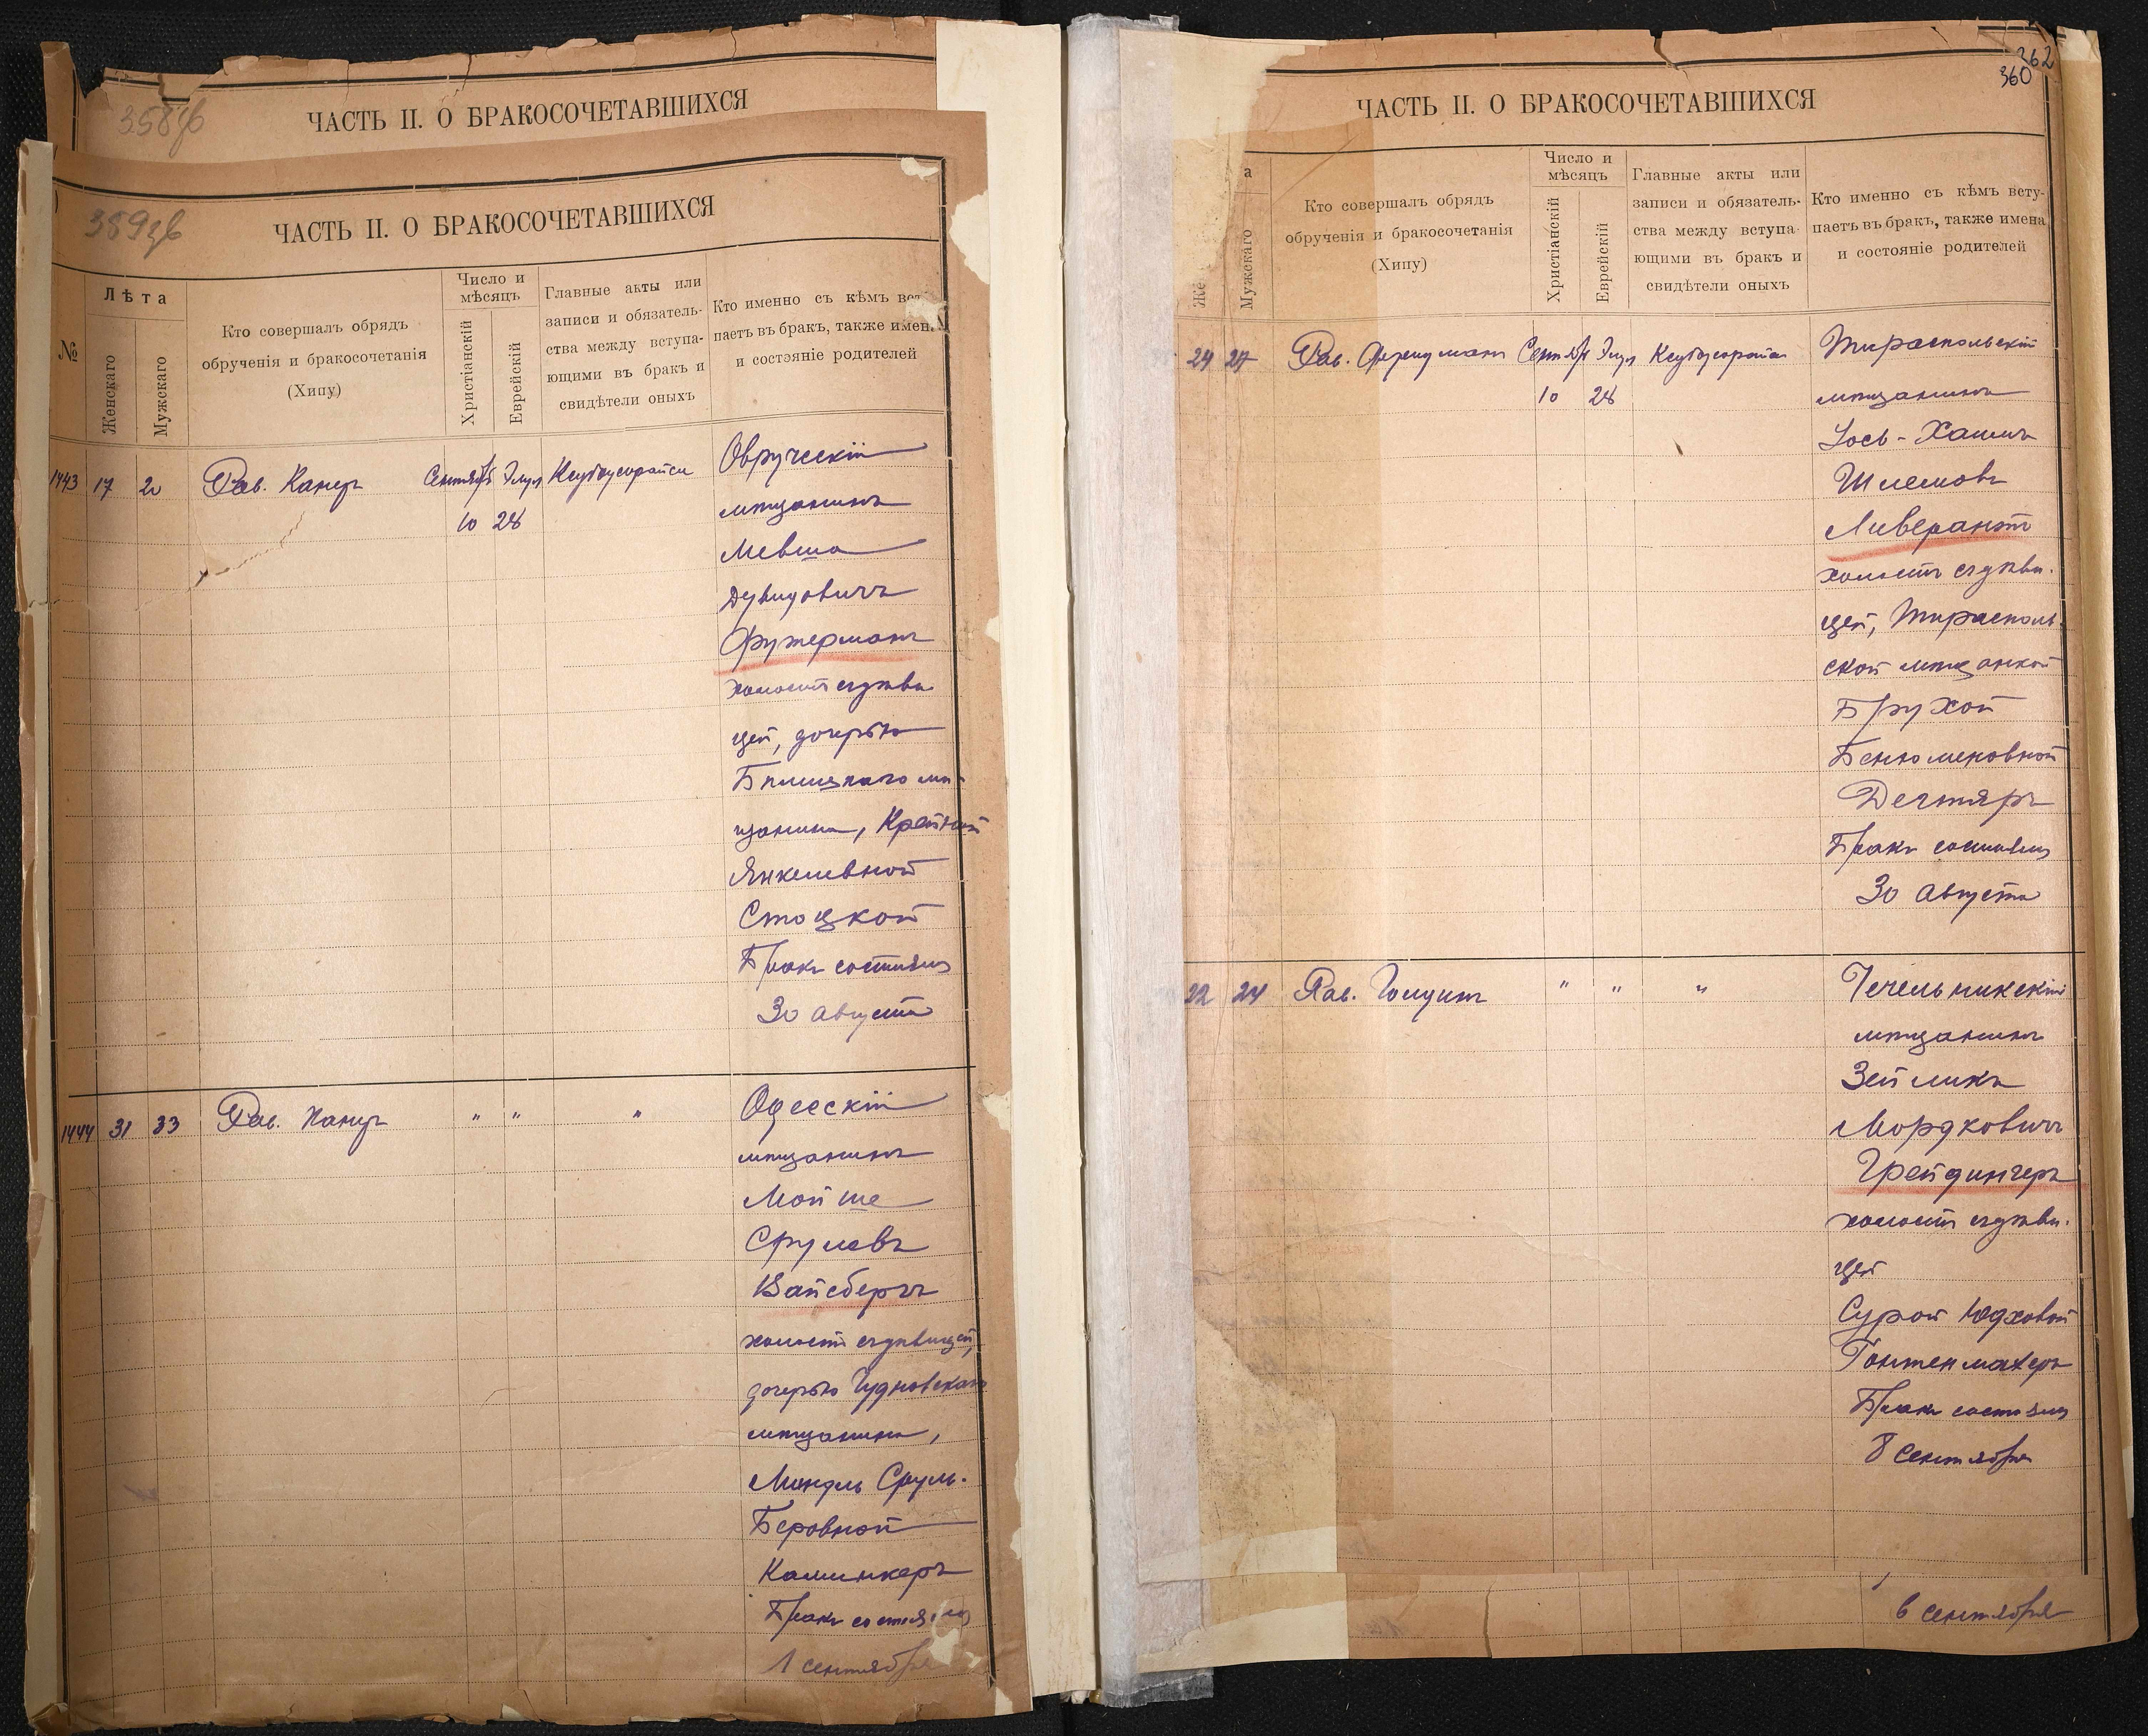 358
ЧАСТЬ II. О БРАКОСОЧЕТАВШИХСЯ
359
ЧАСТЬ II. О БРАКОСОЧЕТАВШИХСЯ
№
Лѣта
Женскаго
Мужскаго
Кто совершалъ обрядъ
обрученія и бракосочетанія
(Хипу)
Число и
мѣсяцъ
Христіанскій
Еврейскій
Главные акты или
записи и обязатель-
ства между вступа-
ющими въ бракъ и
свидѣтели оныхъ
Кто именно съ кѣмъ всту
паетъ въ бракъ, также имена
и состояніе родителей
1443 17 20 Рав. Канеръ Сентябр Элул
10 28
Овручскій
мѣщанинъ
Мевша
Дувидовичъ
Фужерманъ
холостъ съ дѣви
цей, дочерью
Бѣлицкаго мѣ-
щанина, Крейной
Янкелевной
Стоцкой
Бракъ состоялся
30 Августа
1444 31 33 Рав. Канеръ " " "
Одесскій
мѣщанинъ
Мойше
Срулевъ
Вайсбергъ
холостъ съ дѣвицей,
дочерью Чудновскаго
мѣщанина,
Миндль Сруль-
Беровной
Калинкеръ
Бракъ состоялся
1 сентября
362
360
ЧАСТЬ II. О БРАКОСОЧЕТАВШИХСЯ
а
Же
Мужскаго
Кто совершалъ обрядъ
обрученія и бракосочетанія
(Хипу)
Число и
мѣсяцъ
Христіанскій
Еврейскій
Главные акты или
записи и обязатель-
ства между вступа-
ющими въ бракъ и
свидѣтели оныхъ
Кто именно съ кѣмъ всту-
паетъ въ бракъ, также имена
и состояніе родителей
24 27 Рав. Сентябр Элул
10 28
Тираспольскій
мѣщанинъ
Іось-Хаимъ
Шлемовъ
Ливерантъ
холостъ съ дѣви-
цей, Тирасполь-
ской мѣщанкой
Брухой
Бенюминовной
Дегтяръ
Бракъ состоялся
30 Августа
22 24 Рав. " " "
Чечельникскій
мѣщанинъ
Зейликъ
Мордковичъ
Грейдингеръ
холостъ съ дѣви-
цей
Сурой Юдховой
Гонтенмахеръ
Бракъ состоялся
8 сентября
6 сентября